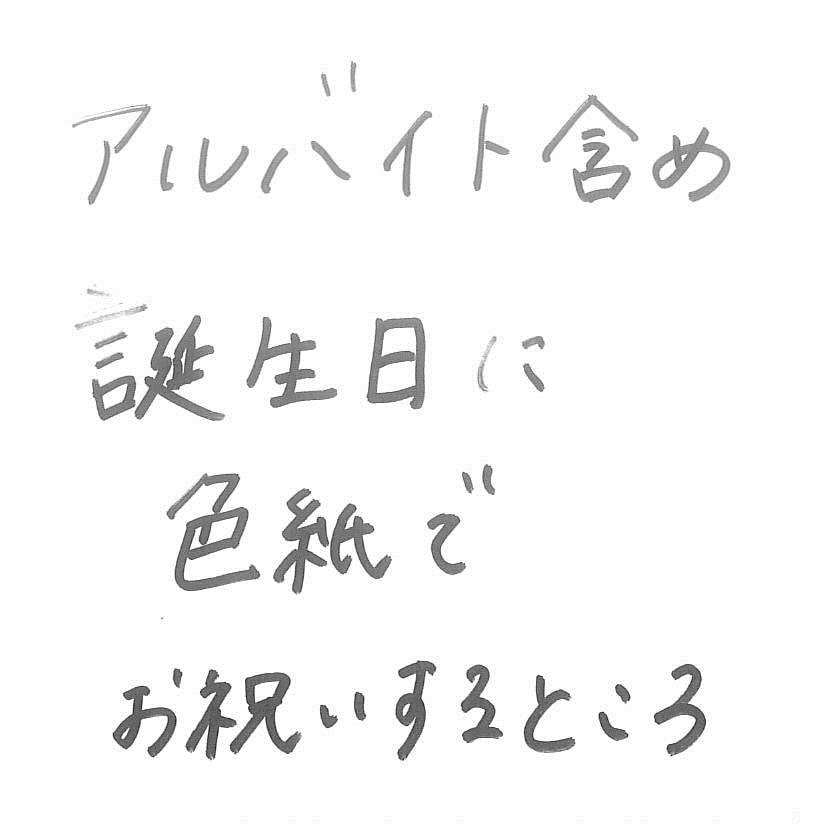 アルバイト含め
誕生日に
色紙で
お祝いするところ